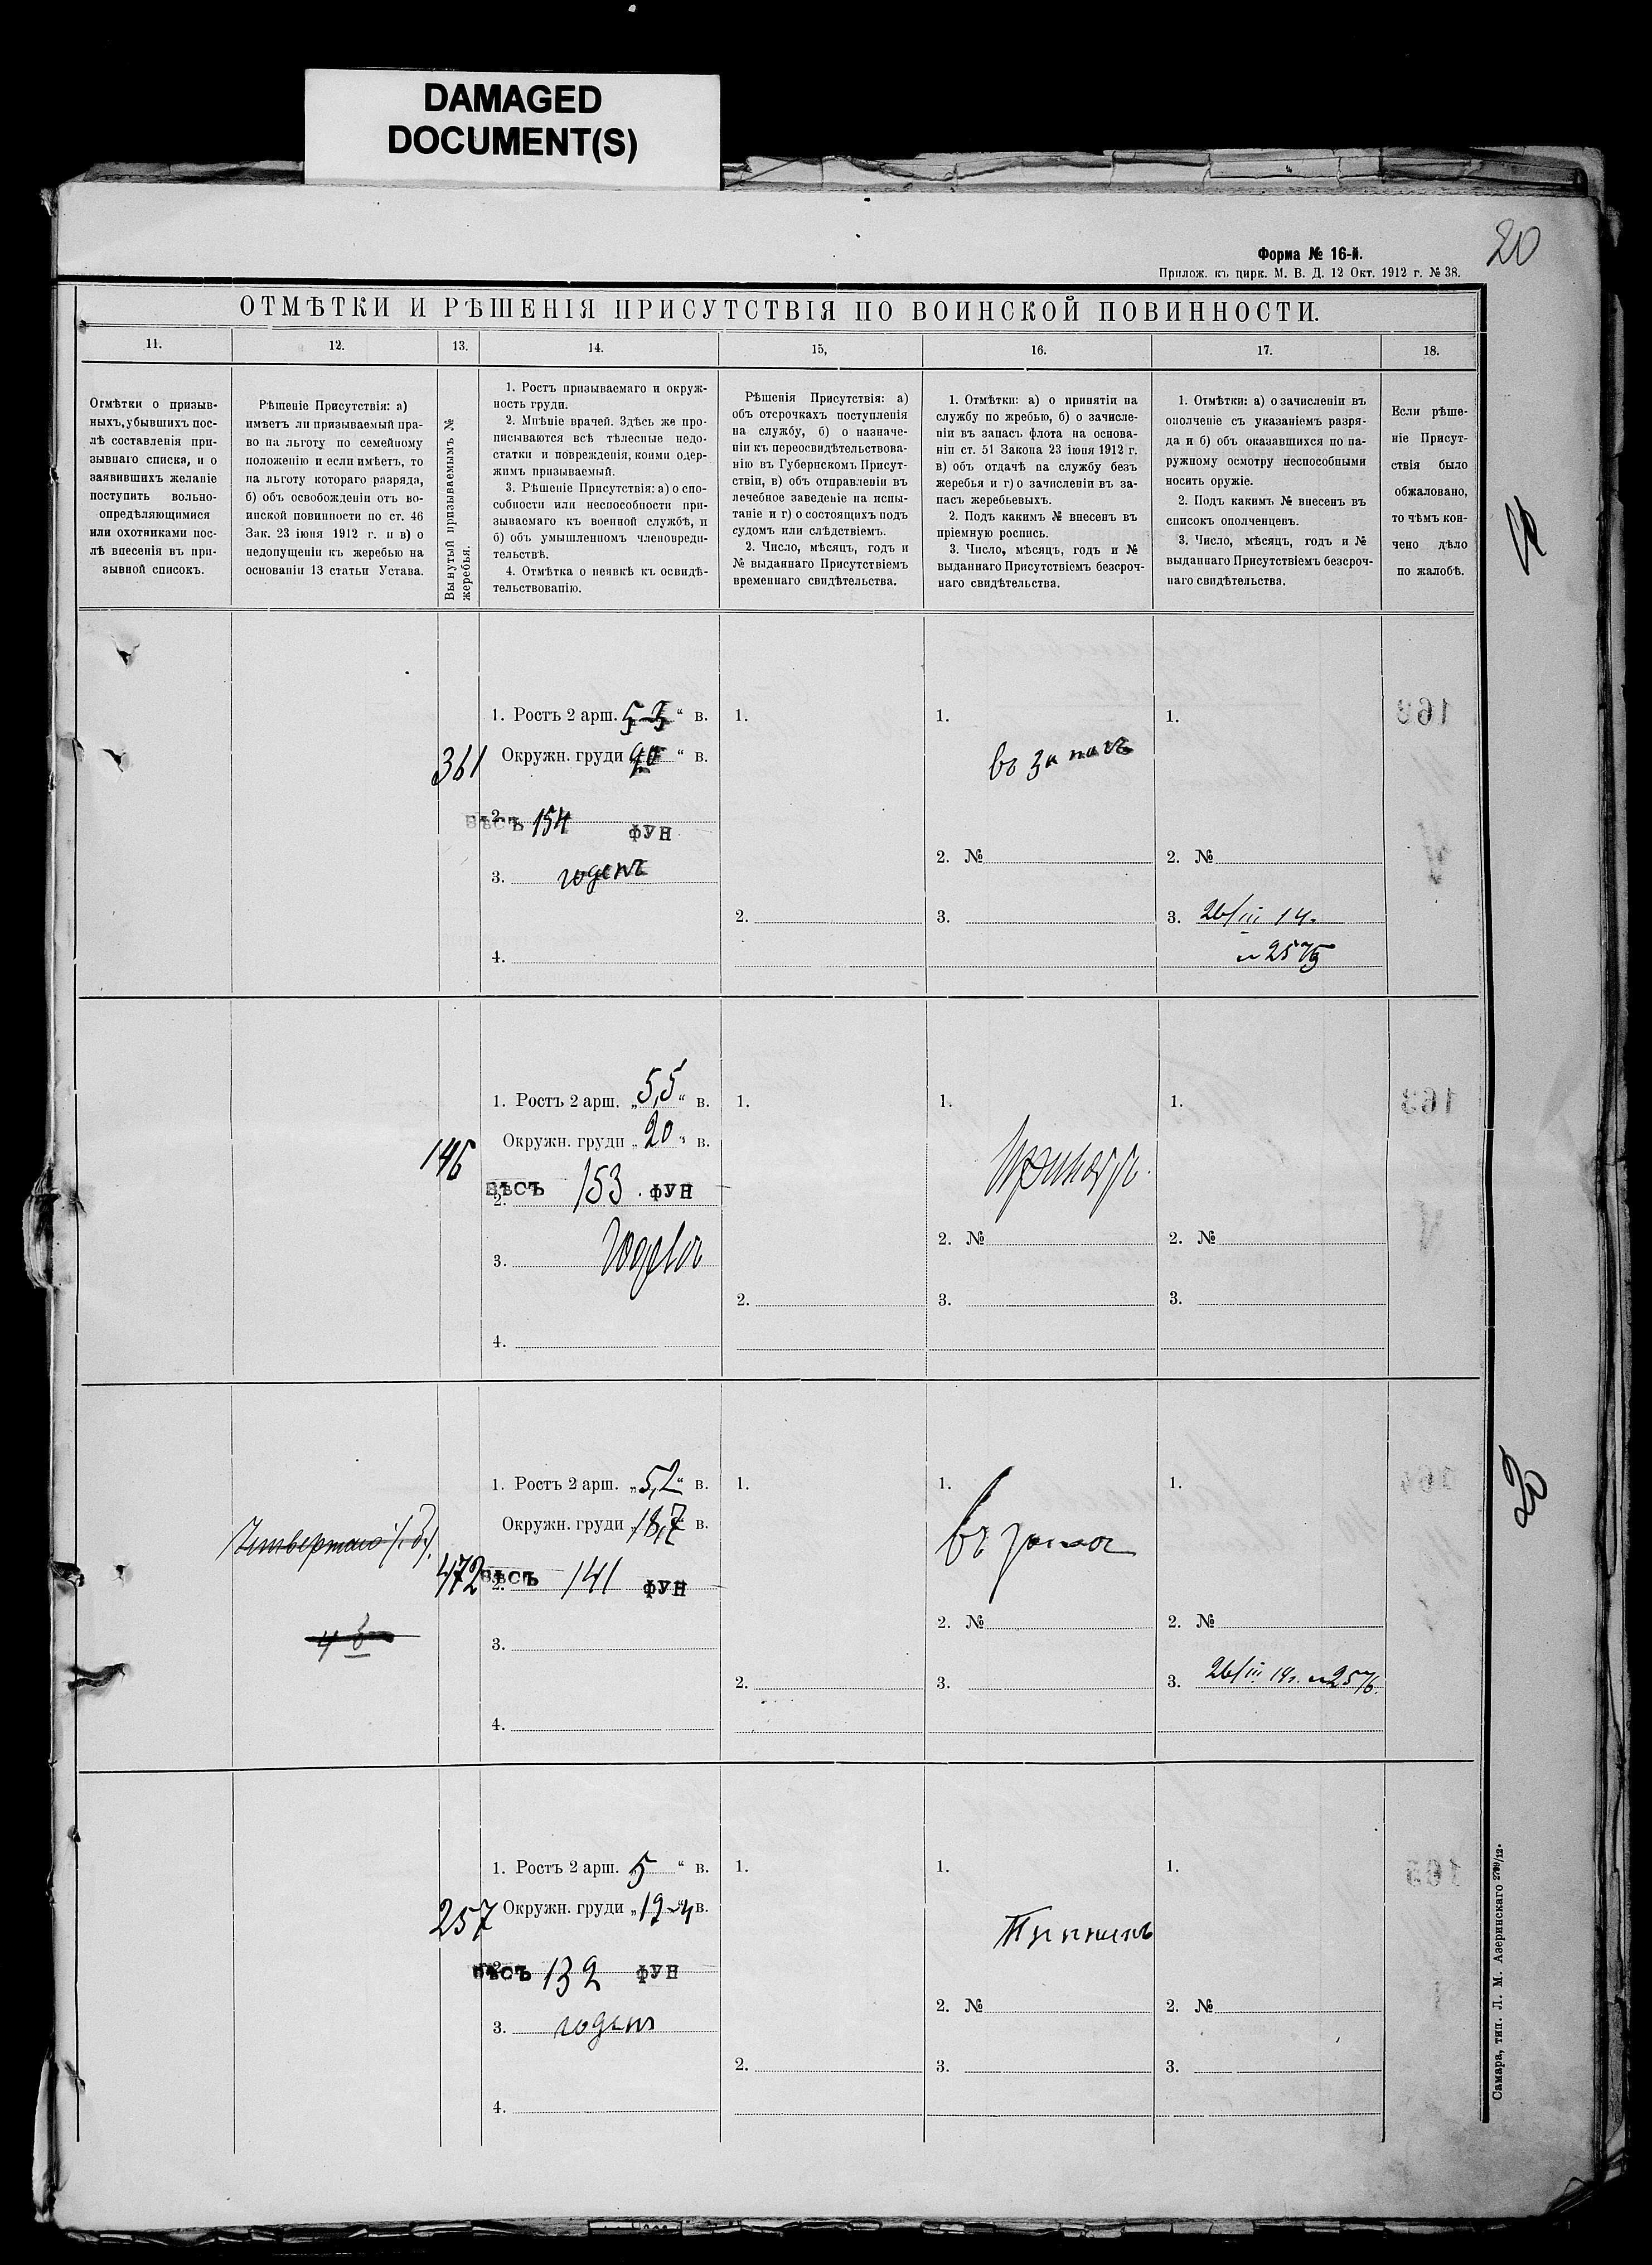 DAMAGED
DOCUMENT(S)
20
Форма № 16-й.
Прилож. къ цирк. М. В. Д. 12 Окт. 1912 г. № 38.
ОТМѢТКИ И РѢШЕНІЯ ПРИСУТСТВІЯ ПО ВОИНСКОЙ ПОВИННОСТИ.
11.
12.
13.
14.
15,
16.
17.
18.
Отмѣтки о призыв-
ныхъ, убывшихъ пос-
лѣ составленія при-
зывнаго списка, и о
заявившихъ желаніе
поступить вольно-
опредѣляющимися
или охотниками пос-
лѣ внесенія въ при-
зывной списокъ.
Рѣшеніе Присутствія: а)
имѣетъ ли призываемый пра-
во на льготу по семейному
положенію и если имѣетъ, то
на льготу котораго разряда,
б) объ освобожденіи отъ во-
инской повинности по ст. 46
Зак. 23 іюня 1912 г. и в) о
недопущеніи къ жеребью на
основаніи 13 статьи Устава.
Вынутый призываемымъ №
жеребья.
1. Ростъ призываемаго и окруж-
ность груди.
2. Мнѣніе врачей. Здѣсь же про-
писываются всѣ тѣлесные недо-
статки и поврежденія, коими одер-
жимъ призываемый.
3. Рѣшеніе Присутствія: а) о спо-
собности или неспособности при-
зываемаго къ военной службѣ, и
б) объ умышленномъ членовреди-
тельствѣ.
4. Отмѣтка о неявкѣ къ освидѣ-
тельствованію.
Рѣшенія Присутствія: а)
объ отсрочкахъ поступленія
на службу, б) о назначе-
ніи къ переосвидѣтельствова-
нію въ Губернскомъ Присут-
ствіи, в) объ отправленіи въ
лечебное заведеніе на испы-
таніе и г) о состоящихъ подъ
судомъ или слѣдствіемъ.
2. Число, мѣсяцъ, годъ и
№ выданнаго Присутствіемъ
временнаго свидѣтельства.
1. Отмѣтки: а) о принятіи на
службу по жребью, б) о зачисле-
ніи въ запасъ флота на основа-
ніи ст. 51 Закона 23 іюня 1912 г.
в) объ отдачѣ на службу безъ
жеребья и г) о зачисленіи въ за-
пасъ жеребьевыхъ.
2. Подъ какимъ № внесенъ въ
пріемную роспись.
3. Число, мѣсяцъ, годъ и №
выданнаго Присутствіемъ безсроч-
наго свидѣтельства.
1. Отмѣтки: а) о зачисленіи въ
ополченіе съ указаніемъ разря-
да и б) объ оказавшихся по на-
ружному осмотру неспособными
носить оружіе.
2. Подъ какимъ № внесенъ въ
списокъ ополченцевъ.
3. Число, мѣсяцъ, годъ и №
выданнаго Присутствіемъ безсроч-
наго свидѣтельства.
Если рѣше-
ніе Присут-
ствія было
обжаловано,
то чѣмъ кон-
чено дѣло
по жалобѣ.
361
1. Ростъ 2 арш. 5-3 “ в.
Окружн. груди 20 “ в.
2.
вѣсъ 154 фун
3. годенъ
4.
1.
2.
1.
въ запасъ
2. №
3.
1.
2. №
3. 26/III 14.
№ 2575
146
1. Ростъ 2 арш. „5,5“ в.
Окружн. груди „20“ в.
вѣсъ 153 фун
2.
3. годенъ
4.
1.
2.
1.
Принятъ.
2. №
3.
1.
2. №
3.
Четвертаго
472
1. Ростъ 2 арш. „5,2“ в.
Окружн. груди „18,7 в.
вѣсъ 141 фун
2.
3.
4.
1.
2.
1.
въ запас
2. №
3.
1.
2. №
3. 26/III 14г. №2576.
257
1. Ростъ 2 арш. 5 “ в.
Окружн. груди „19-4 в.
2.
вѣсъ 132 фун
3. годенъ
4.
1.
2.
1.
2. №
3.
1.
2. №
3.
Самара, тип. Л. М. Азеринскаго 2789/12.